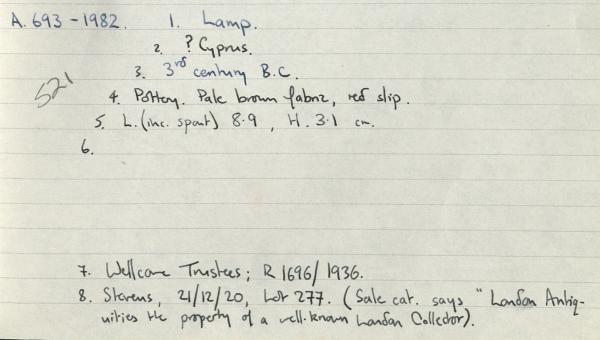 A. 693 - 1982. 1. Lamp.
2. ? Cyprus.
3. 3rd century B.C.
521
4. Pottery. Pale brown fabric, red slip.
5. L. (inc. spout) 8.9, H. 3.1 cm.
6.
7. Wellcome Trustees; R 1696/1936.
8. Stevens, 21/12/20, Lot 277. (Sale cat. says "London Antiq-
uities the property of a well-known London Collector).